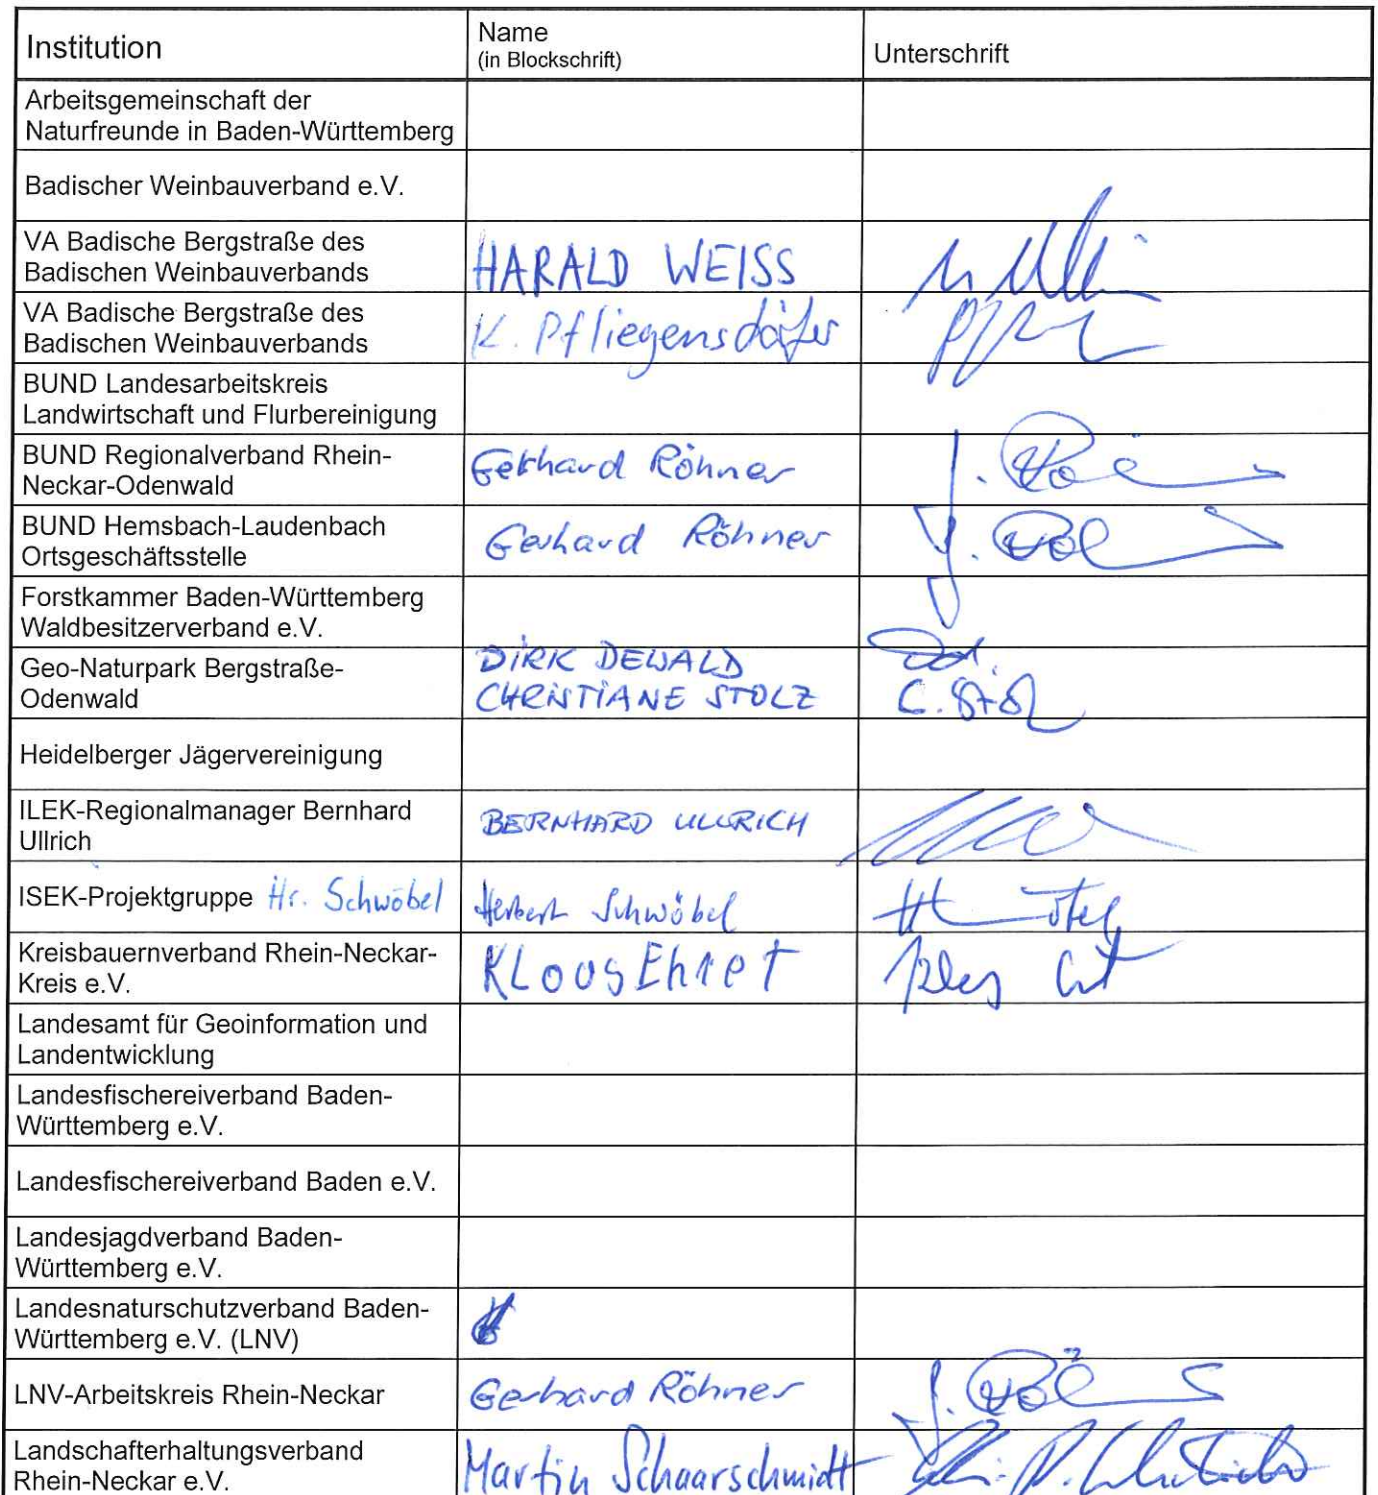 Institution
Name
(in Blockschrift)
Unterschrift
Arbeitsgemeinschaft der
Naturfreunde in Baden-Württemberg
Badischer Weinbauverband e.V.
VA Badische Bergstraße des
Badischen Weinbauverbands
HARALD WEISS
VA Badische Bergstraße des
Badischen Weinbauverbands
K. Pfliegensdörfer
BUND Landesarbeitskreis
Landwirtschaft und Flurbereinigung
BUND Regionalverband Rhein-
Neckar-Odenwald
Gerhard Röhner
BUND Hemsbach-Laudenbach
Ortsgeschäftsstelle
Gerhard Röhner
Forstkammer Baden-Württemberg
Waldbesitzerverband e.V.
Geo-Naturpark Bergstraße-
Odenwald
DIRK DEWALD
CHRISTIANE STOLZ
C. Stolz
Heidelberger Jägervereinigung
ILEK-Regionalmanager Bernhard
Ullrich
BERNHARD ULLRICH
ISEK-Projektgruppe Hr. Schwöbel
Herbert Schwöbel
Kreisbauernverband Rhein-Neckar-
Kreis e.V.
KLOOS Ehret
Landesamt für Geoinformation und
Landentwicklung
Landesfischereiverband Baden-
Württemberg e.V.
Landesfischereiverband Baden e.V.
Landesjagdverband Baden-
Württemberg e.V.
Landesnaturschutzverband Baden-
Württemberg e.V. (LNV)
LNV-Arbeitskreis Rhein-Neckar
Gerhard Röhner
Landschafterhaltungsverband
Rhein-Neckar e.V.
Martin Schaarschmidt